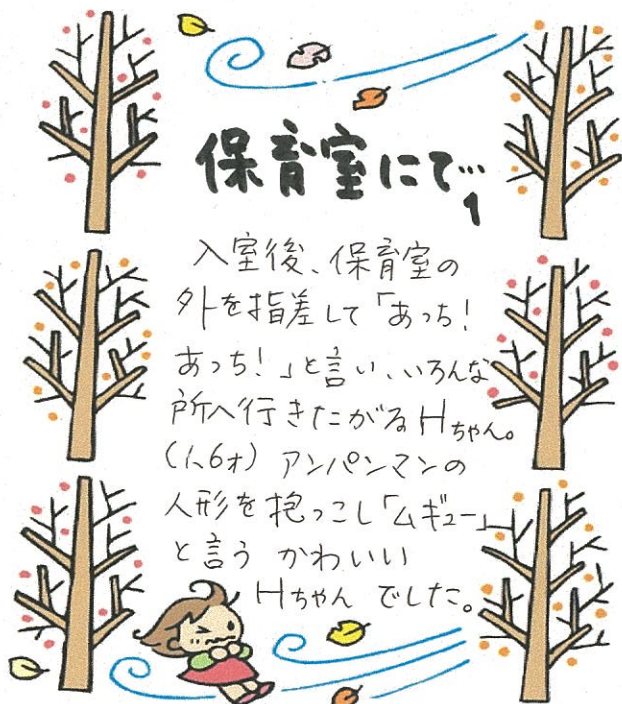 保育室にて…1
入室後、保育室の
外を指差して「あっち!
あっち!」と言い、いろんな
所へ行きたがるHちゃん。
(1、6才) アンパンマンの
人形を抱っこし「ムギュー」
と言う かわいい
Hちゃん でした。